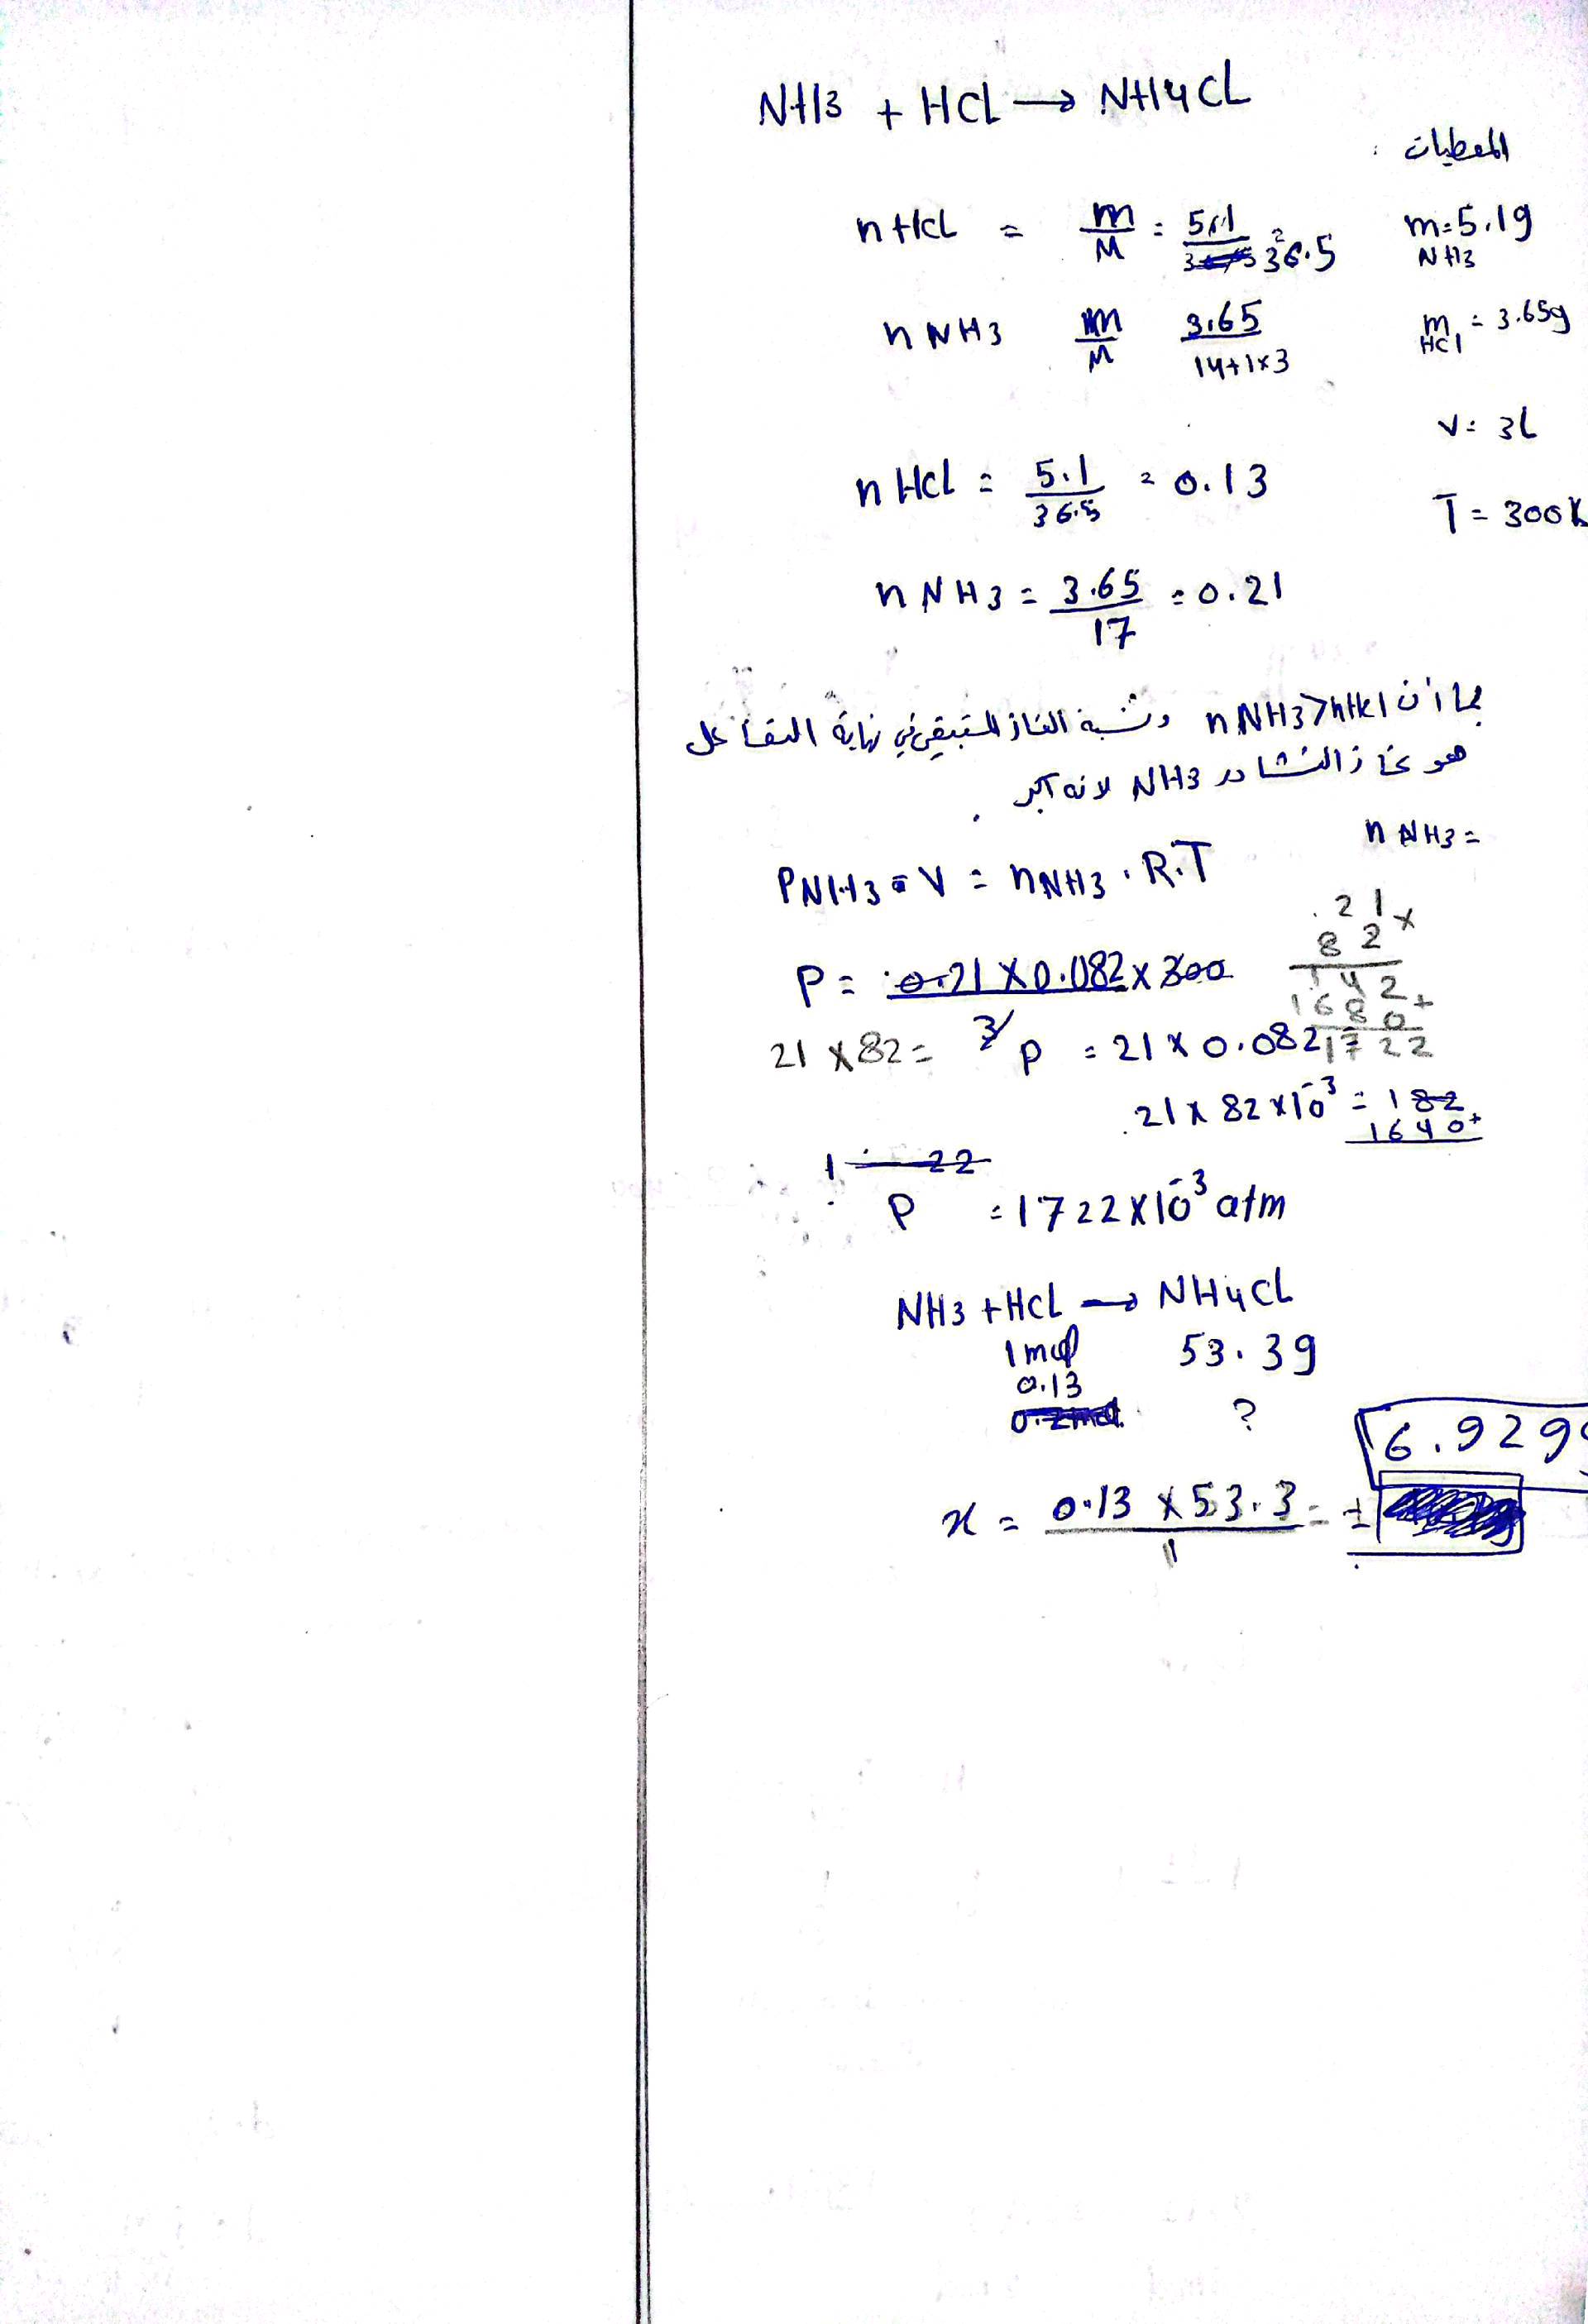 NH3 + HCl → NH4Cl
المعطيات :
nHCl = m/M = 5.1/36.5
m = 5.1g NH3
n NH3 m/M 3.65/14+1×3
m HCl = 3.65g
V = 3L
n HCl = 5.1/36.5 = 0.13
T = 300K
n NH3 = 3.65/17 = 0.21
بما أن n NH3 > nHCl ونسبة الغاز المتبقي في نهاية التفاعل
هو غاز النشادر NH3 لانه أكبر .
n NH3 =
PNH3 • V = nNH3 . R.T
.21 ×
82
P = 0.21 × 0.082 × 300
3
142
1680 +
1722
21 × 82 =
P = 21 × 0.082
.21 × 82 × 10⁻³ = 182
1640 +
1 22
P = 1722 × 10⁻³ atm
NH3 + HCl → NH4Cl
1mol 53.3g
0.13
0.2mol ?
6.929g
x = 0.13 × 53.3 / 1 = =